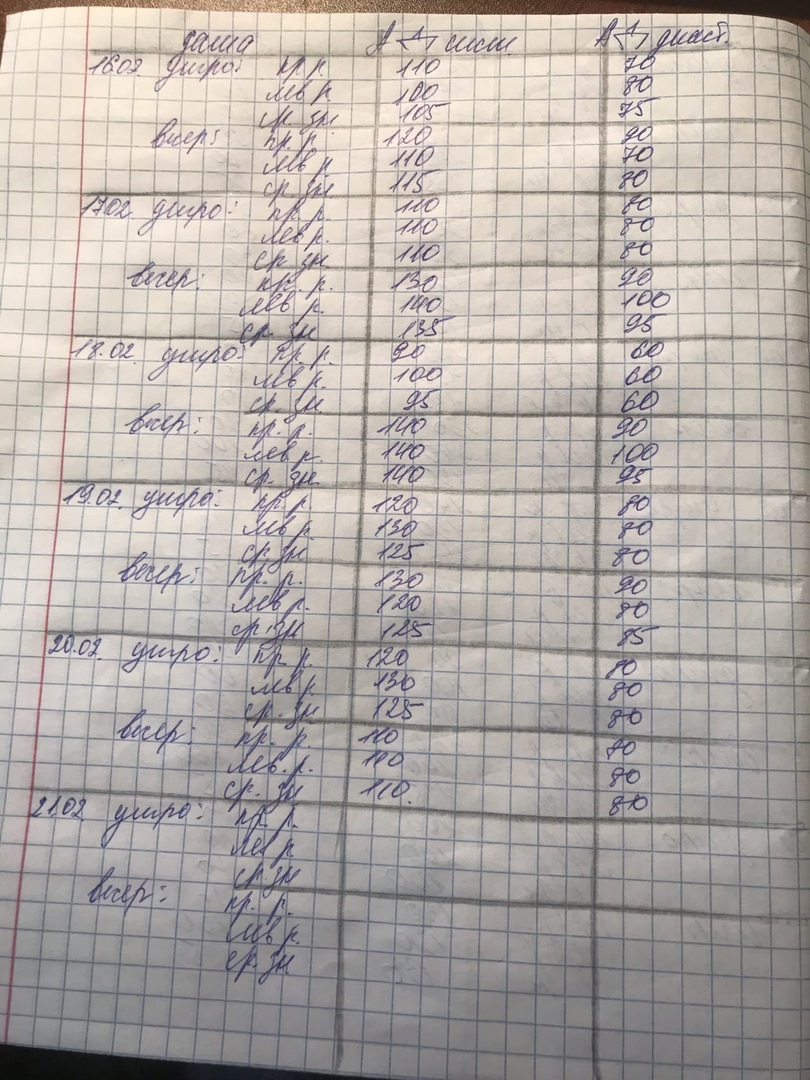 дата АД сист. АД диаст.
16.02 утро: пр. р. 110 70
лев р. 100 80
ср. зн. 105 75
вечер: пр. р. 120 90
лев р. 110 70
ср. зн. 115 80
17.02. утро: пр. р. 110 80
лев р. 110 80
ср. зн. 110 80
вечер: пр. р. 130 90
лев р. 140 100
ср. зн. 135 95
18.02. утро: пр. р. 90 60
лев р. 100 60
ср. зн. 95 60
вечер: пр. р. 140 90
лев р. 140 100
ср. зн. 140 95
19.02. утро: пр. р. 120 80
лев р. 130 80
ср. зн. 125 80
вечер: пр. р. 130 90
лев р. 120 80
ср. зн. 125 85
20.02. утро: пр. р. 120 80
лев р. 130 80
ср. зн. 125 80
вечер: пр. р. 110 80
лев. р. 110 80
ср. зн. 110. 80
21.02 утро: пр. р.
лев р.
ср. зн.
вечер: пр. р.
лев р.
ср. зн